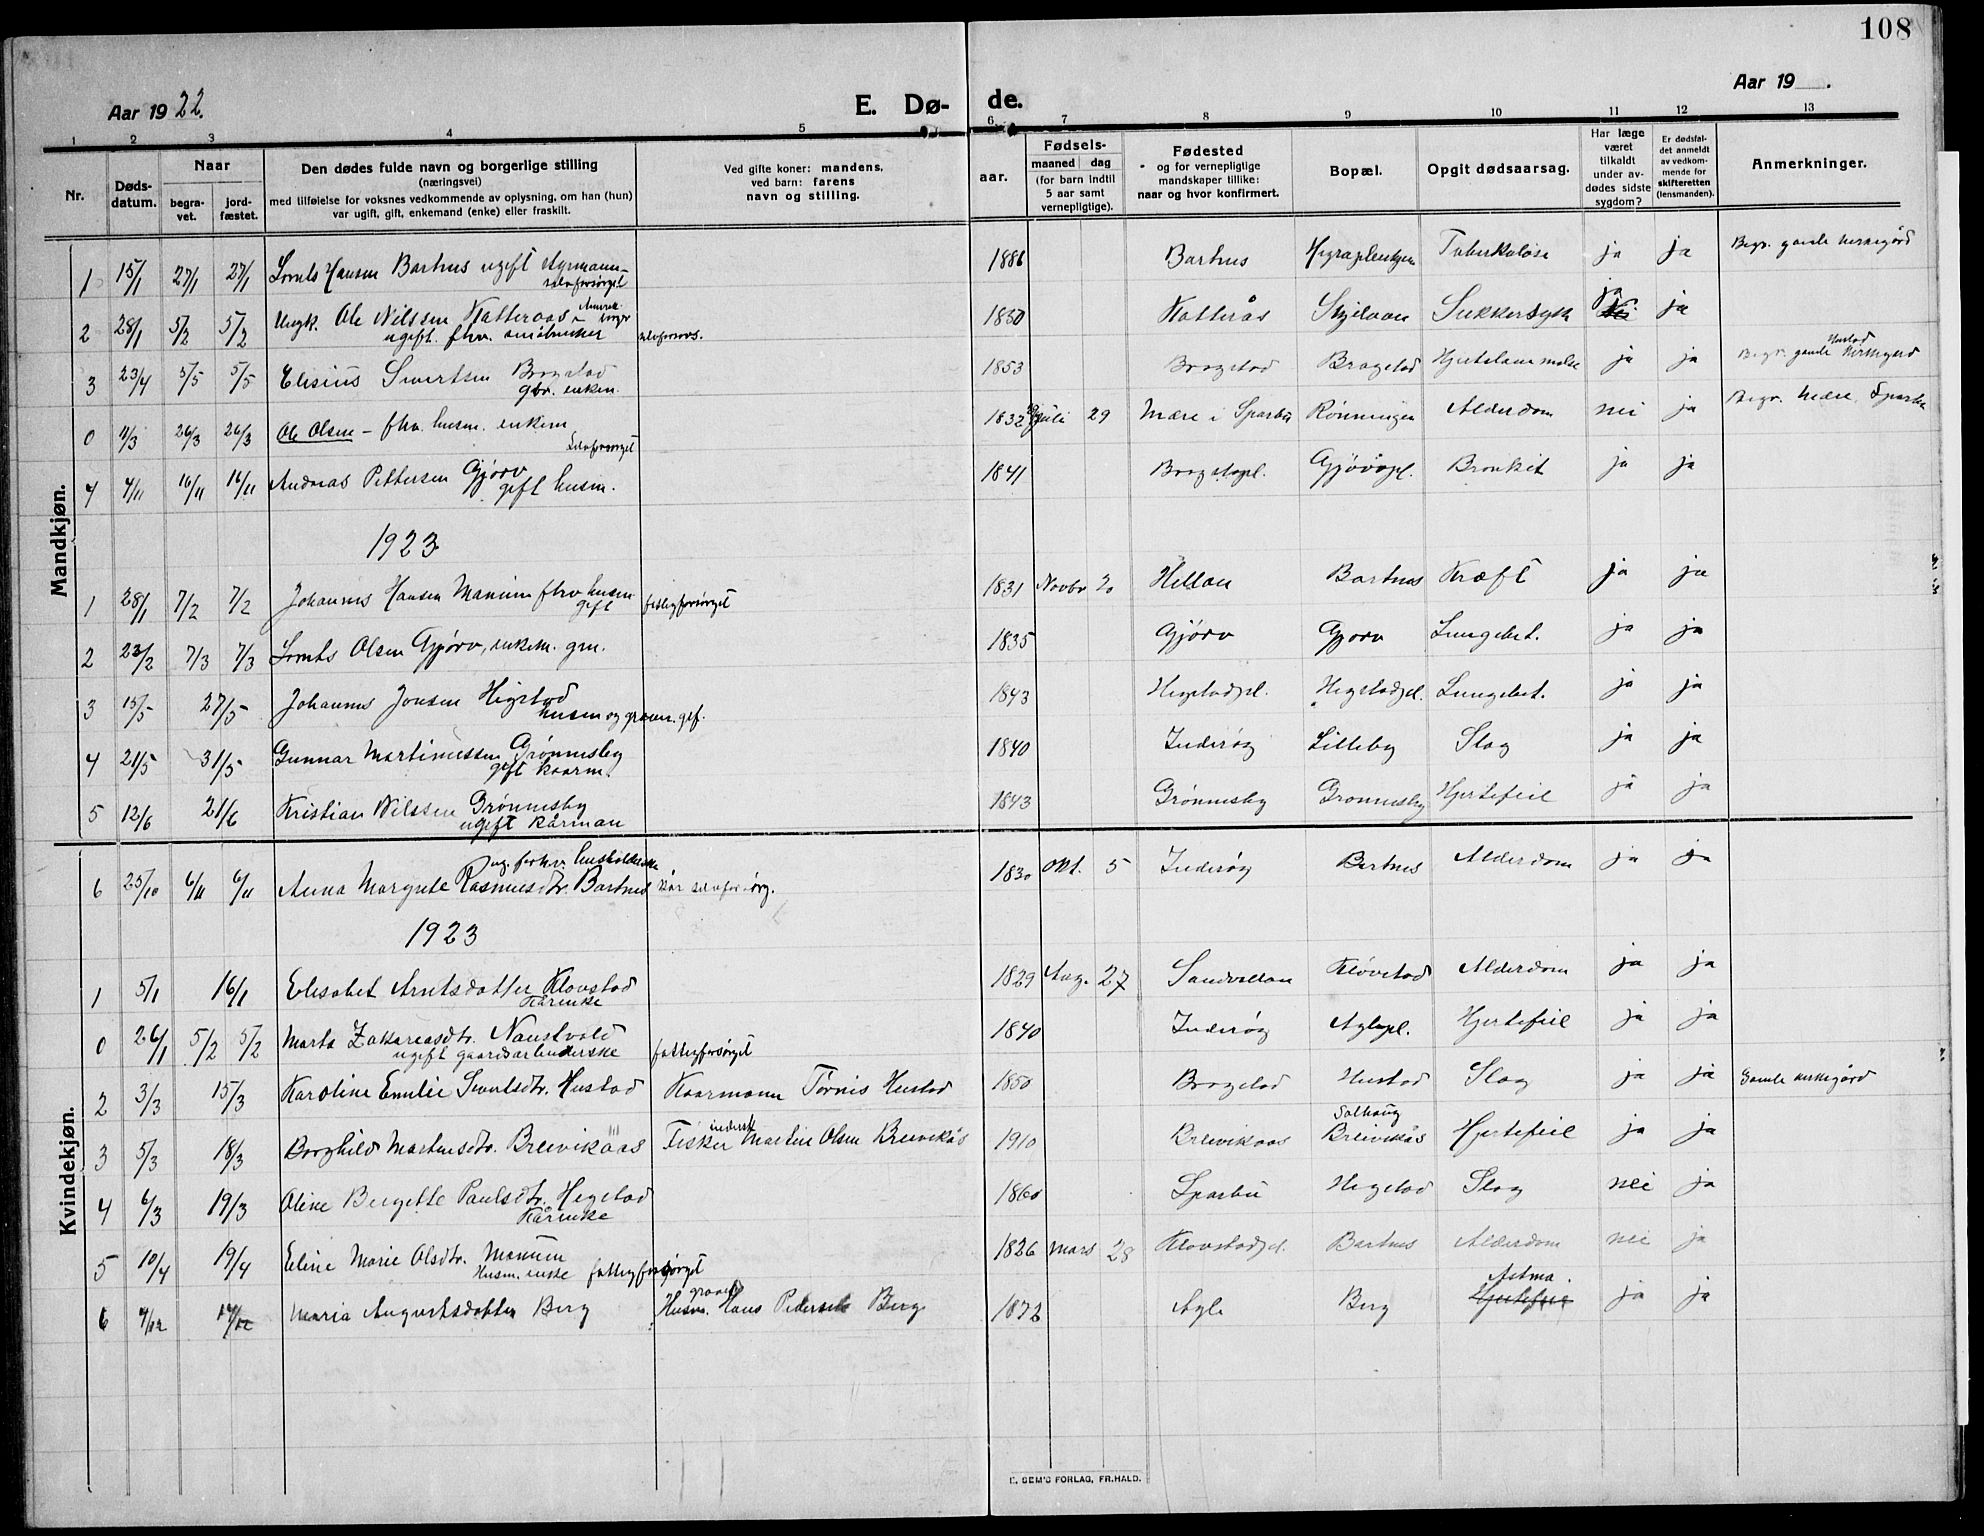 108
Aar 1922.
E. Dø- de.
Aar 19 .
1 2 3 4 5 6 7 8 9 10 11 12 13
Nr.
Døds-
datum.
Naar
begra-
vet.
jord-
fæstet.
Den dødes fulde navn og borgerlige stilling
(næringsvei)
med tilføielse for voksnes vedkommende av oplysning, om han (hun)
var ugift, gift, enkemand (enke) eller fraskilt.
Ved gifte koner: mandens,
ved barn: farens
navn og stilling.
Fødsels-
aar.
maaned dag
(for barn indtil
5 aar samt
vernepligtige).
Fødested
og for vernepligtige
mandskaper tillike:
naar og hvor konfirmert.
Bopæl.
Opgit dødsaarsag.
Har læge
været
tilkaldt
under av-
dødes sidste
sygdom?
Er dødsfal-
det anmeldt
av vedkom-
mende for
skifteretten
(lensmanden).
Anmerkninger.
Mandkjøn.
1 15/1 27/1 27/1 Hansen Bartnus ugift styrmann 1886 Bartnus Tuberkulose ja ja Begr. gamle kirkegård
selvforsørget
2 28/1 5/2 5/2 Ungk. Ole Nilssen Katteraas 1850 Kotterås Sukkersyk ja ja
ugift. fhv. småbruker selvforsørg.
3 23/4 5/5 5/5 Elisius Sivertsen Brogstad 1853 Brogstad Brogstad Hjertelammelse ja ja Begr. gamle Hustad kirkegård
gbr. enkem.
0 11/3 26/3 26/3 Ole Olsen - fhv. husm. enkem 1832 juli 29 Mære i Sparbu Rønningen Alderdom nei ja Begr. Mære, Sparbu
Selvforsørget
4 4/11 16/11 16/11 Andreas Pettersen Gjørv 1841 Brogstadpl. Gjørvpl. Bronkit ja ja
gift husm.
1923
1 28/1 7/2 7/2 Johannes Hansen Manum fhv husm. 1831 Novbr 20 Hellan Bartnus Kræft ja ja
gift fattigforsørget
2 23/2 7/3 7/3 Olsen Gjørv, enkem. gm. 1835 Gjørv Gjørv Lungebet. ja ja
3 15/5 27/5 Johannes Jonsen Hegstad 1843 Hegstadpl. Hegstadpl. Lungebet. ja ja
husm og gif.
4 21/5 31/5 Gunnar Martinussen Grønnesby 1840 Inderøy Lilleby Slag ja ja
gift kaarm.
5 12/6 21/6 Kristian Nilssen Grønnesby 1843 Grønnesby Grønnesby Hjertefeil ja ja
ugift kårman
Kvindekjøn.
ug. forhv. husholderske
6 25/10 6/11 6/11 Anna Margrete Rasmusdtr. Bartnes selvforsørg. 1830 Okt. 5 Inderøy Bartnes Alderdom ja ja
1923
1 5/1 16/1 Elisabet Arntsdatter Kløvstad 1829 Aug. 27 Sandvollan Kløvstad Alderdom ja ja
Kårenke
0 26/1 5/2 5/2 Marta Zakariasdtr. Naustvold 1840 Inderøy Aglepl. Hjertefeil ja ja
ugift gaardsarbeiderske fattigforsørget
2 3/3 15/3 Karoline Emelie Sivertsdtr. Hustad Kaarmann Tørris Hustad 1850 Brogstad Hustad Slag ja ja Gamle kirkegård
3 5/3 18/3 Borghild Martinsdtr. Breivikaas Fisker Martin Olsen Breivikås 1910 Breivikaas Solhaug Breivikås Hjertefeil ja ja
4 6/3 19/3 Oline Bergitte Paulsdtr. Hegstad 1860 Sparbu Hegstad Slag nei ja
Kårenke
5 10/4 19/4 Eline Marie Olsdtr. Manum 1826 Mars 28 Kløvstadpl. Bartnes Alderdom nei ja
Husm. enke fattigforsørget
6 4/12 14/12 Maria Augustsdatter Berg Husm. Hans Pedersen Berg 1872 Agle Berg Astma. Hjertefeil ja ja
E. SEM'S FORLAG, FR.HALD.